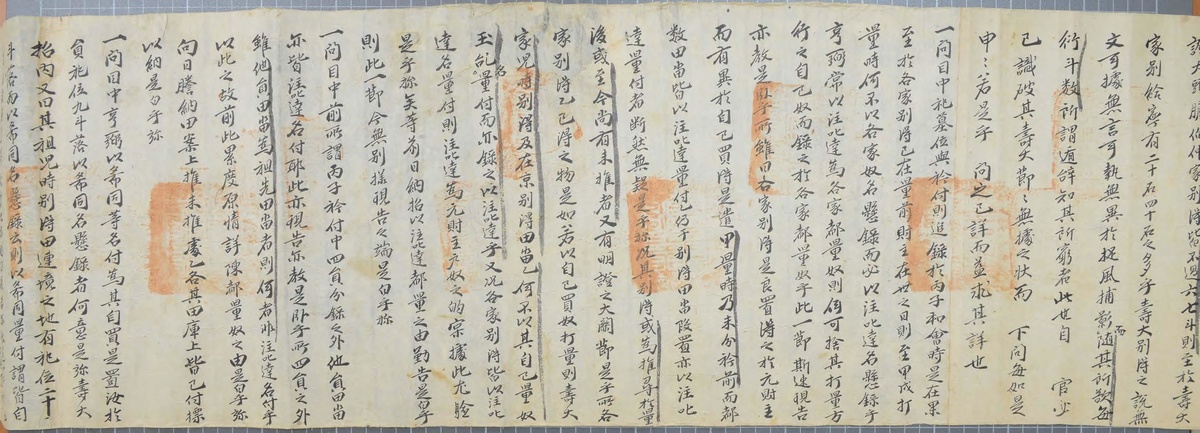 家別給庫有二十石四十石之多乎壽大別時之說無
文可據無言可執無異於捉風捕影而隨其所欲每
衍斗數所謂遁辭知其所窮者此也自 官少
已識破其壽大節〻無據之狀而 下問每如是
申〻若是乎 問之已詳而益求其詳也
一問目中祀墓位與衿付則追錄於丙子和會時是在果
至於各家別得已在量前財主在世之日則至甲戌打
量時何不以各家奴名懸錄而必以注叱達名懸錄乎
亨弼常以注叱達爲各家都量奴則何可捨其打量方
行之自己奴而錄之於各家都量奴乎此一節斯速現告
亦敎是臥乎所雖田各家別時是良置得之於元財主
而有異於自己買得是遣甲量時乃未分衿前而都
數田畓皆以注叱達量付已仍于別得田畓段置亦以注叱
達量付者斷然無疑是乎旀况其別得或爲推尋於量
後或至今尚有未推者又有明證之大關節是乎所各
家別得已〻得之物是如若以自己買奴打量則壽大
家児時別得及在京別得田畓乙何不以其自己量奴
玉乭名量付而亦錄之以注叱達乎又况各家別得皆以注叱
達名量付則注叱達爲元財主戶奴之的實據此尤脍
是乎旀矣等前日納招以注叱達都量之由勤告是白乎
則此一節今無別樣現告之端是白乎旀
一問目中前所謂丙子衿付中四員分錄之外他員田畓
亦皆注叱達名付耶此亦現告亦敎是臥乎所四員之外
雖他員田畓爲祖先田畓者則何者非注叱達名付乎
以此之故前此累度原情詳陳都量奴之由是白乎旀
向日謄納田案上推未推處乙各其田庫上皆已付標
以納是白乎旀
一問目中亨弼以希同等名付爲其自買是置汝於
員祀位九斗落以希同名懸錄者何意是旀壽大
招內又曰其祖児時別得田連境之地有祀位二十